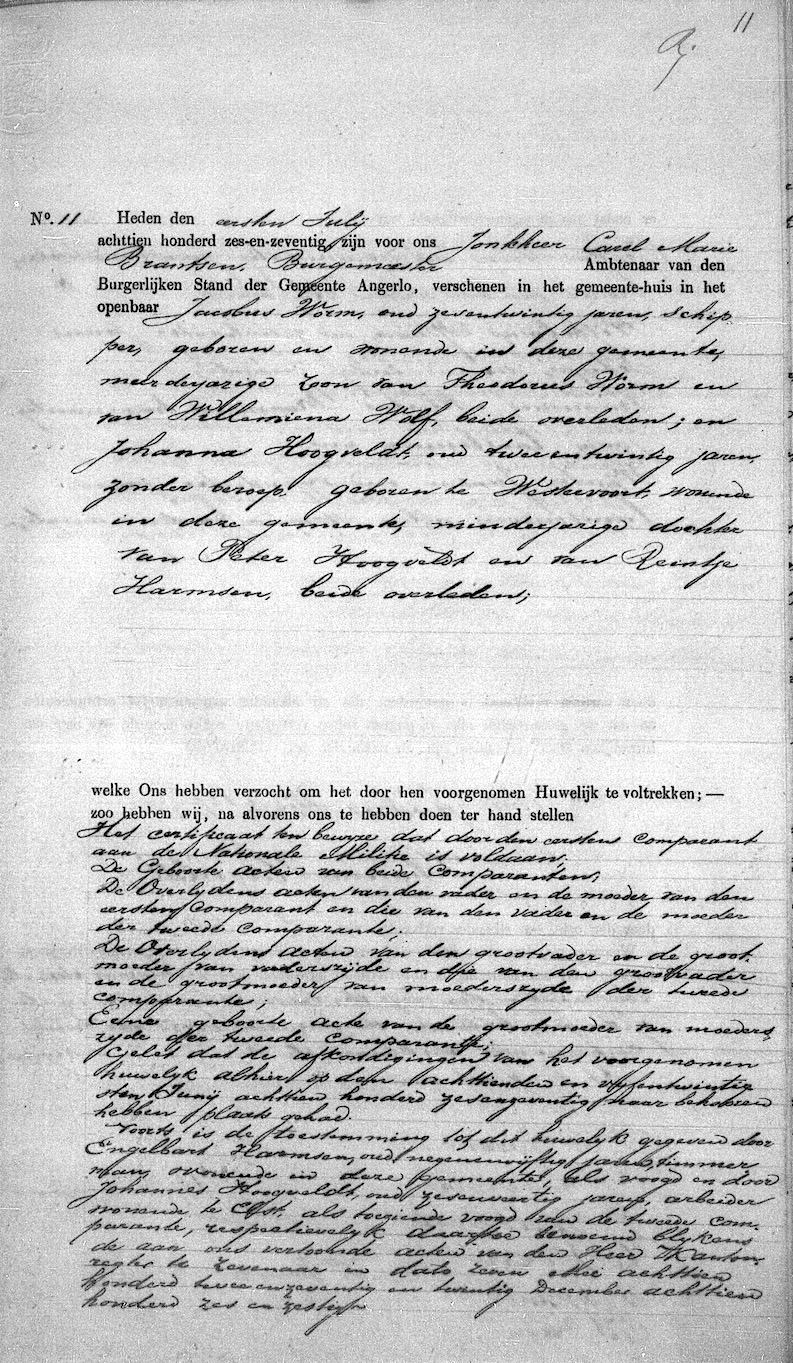 11
No. 11 Heden den eersten Julij
achttien honderd zes-en-zeventig zijn voor ons Jonkheer Carel Marie
Brantsen, Burgemeester Ambtenaar van den
Burgerlijken Stand der Gemeente Angerlo, verschenen in het gemeente-huis in het
openbaar Jacobus Worm, oud zesentwintig jaren, schip
per, geboren en wonende in deze gemeente,
meerderjarige zoon van Theodorus Worm en
van Willemiena Wolf, beide overleden; en
Johanna Hoogveldt, oud tweeentwintig jaren,
zonder beroep geboren te Westervoort, wonende
in deze gemeente, minderjarige dochter
van Peter Hoogveldt en van Reintje
Harmsen, beide overleden;
welke Ons hebben verzocht om het door hen voorgenomen Huwelijk te voltrekken; —
zoo hebben wij, na alvorens ons te hebben doen ter hand stellen
Het certificaat ten bewyze dat door den eersten comparant
aan de Nationale Militie is voldaan;
De Geboorte acten van beide Comparanten;
De Overlydens acten van den vader en de moeder van den
eersten Comparant en die van den vader en de moeder
der tweede Comparante;
De Overlydens acten van den grootvader en de groot
moeder van vaderszyde en die van den grootvader
en de grootmoeder van moederszyde der tweede
comparante;
Eene geboorte acte van de grootmoeder van moeders
zyde der tweede comparante;
Gelet dat de afkondigingen van het voorgenomen
huwelyk alhier op den achttienden en vyfentwintig
sten Junij achttien honderd zesenzeventig naar behooren
hebben plaats gehad.
Voorts is de toestemming tot dit huwelyk gegeven door
Engelbart Harmsen, oud negenenvyftig jaren, timmer
man, wonende in deze gemeente, als voogd en door
Johannes Hoogveldt, oud zesenveertig jaren, arbeider
wonende te als toeziende voogd van de tweede com-
parante, respectievelyk daartoe benoemd blykens
de aan ons vertoonde acten van den Heer Kanton
regter te Zevenaar in dato zeven Mei achttien
honderd tweeenzeventig en twintig December achttien
honderd zes en zestig